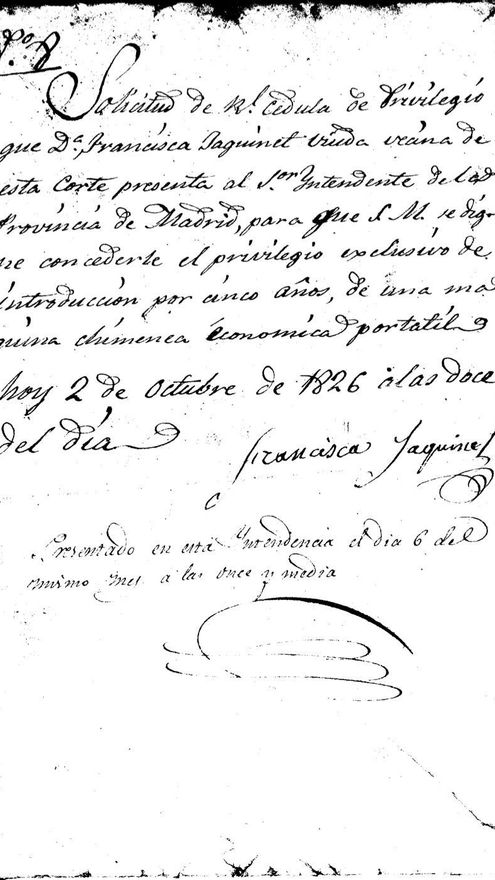 P.º 8
Solicitud de Rl. cedula de Privilegio
que Dª. Francisca Jaquinet viuda vecina de
esta Corte presenta al S.or Yntendente de la
Provincia de Madrid, para que S. M. se dig-
ne concederle el privilegio exclusivo de
introduccion por cinco años, de una ma
quina chimenea económica portatil
hoy 2 de Octubre de 1826 á las doce
del día
Francisca Jaquinet
Presentado en esta Yntendencia el dia 6 del
mismo mes a las once y media